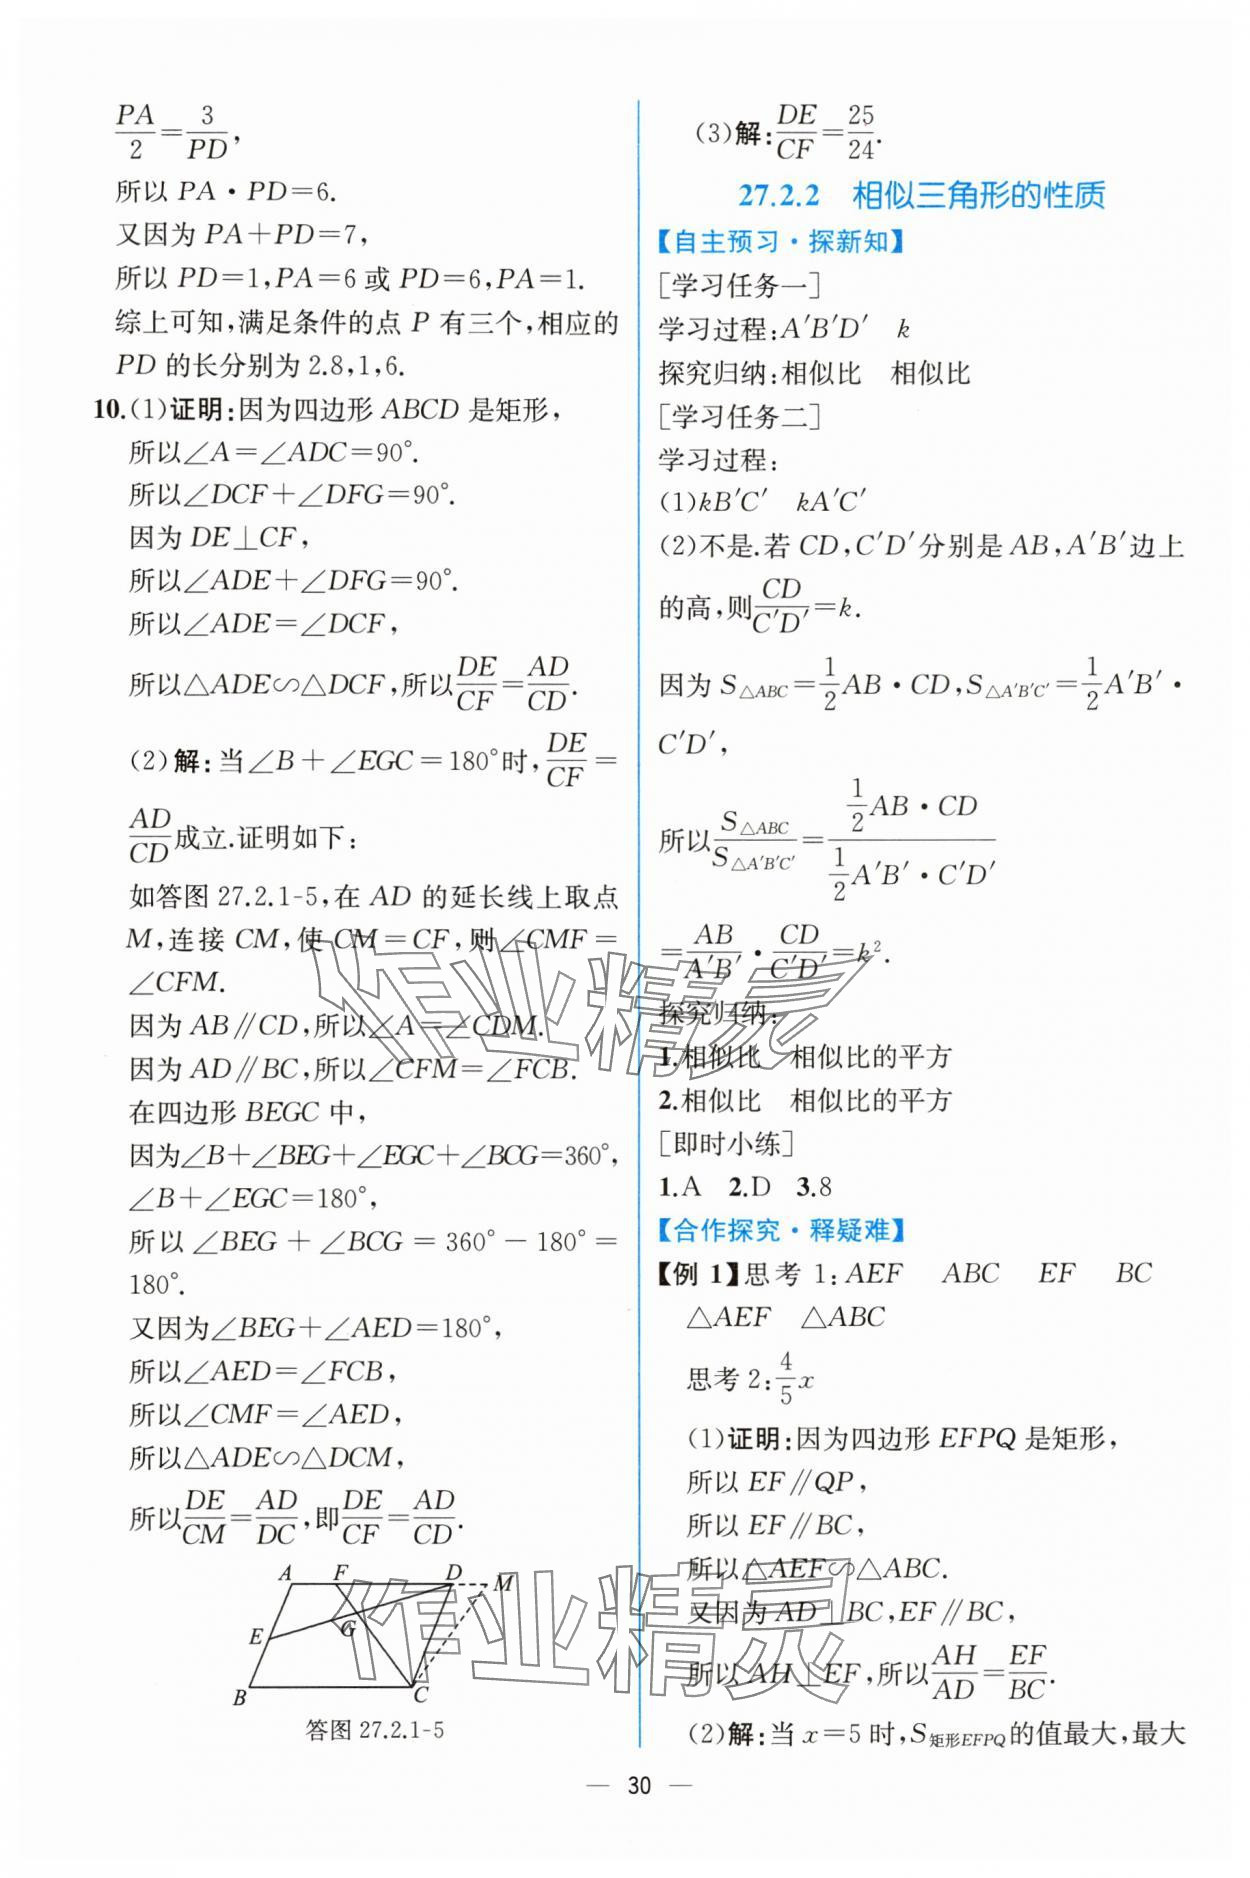 PA/2=3/PD,
所以 PA·PD=6.
又因为 PA+PD=7,
所以 PD=1,PA=6 或 PD=6,PA=1.
综上可知,满足条件的点 P 有三个,相应的
PD 的长分别为 2.8,1,6.
10.(1)证明:因为四边形 ABCD 是矩形,
所以∠A=∠ADC=90°.
所以∠DCF+∠DFG=90°.
因为 DE⊥CF,
所以∠ADE+∠DFG=90°.
所以∠ADE=∠DCF,
所以△ADE∽△DCF,所以DE/CF=AD/CD.
(2)解:当∠B+∠EGC=180°时,DE/CF=
AD/CD成立.证明如下:
如答图 27.2.1-5,在 AD 的延长线上取点
M,连接 CM,使 CM=CF,则∠CMF=
∠CFM.
因为 AB∥CD,所以∠A=∠CDM.
因为 AD∥BC,所以∠CFM=∠FCB.
在四边形 BEGC 中,
因为∠B+∠BEG+∠EGC+∠BCG=360°,
∠B+∠EGC=180°,
所以∠BEG+∠BCG=360°-180°=
180°.
又因为∠BEG+∠AED=180°,
所以∠AED=∠FCB,
所以∠CMF=∠AED,
所以△ADE∽△DCM,
所以DE/CM=AD/DC,即DE/CF=AD/CD.
A F D M
E G
B C
答图 27.2.1-5
(3)解:DE/CF=25/24.
27.2.2 相似三角形的性质
【自主预习·探新知】
[学习任务一]
学习过程:A′B′D′ k
探究归纳:相似比 相似比
[学习任务二]
学习过程:
(1)kB′C′ kA′C′
(2)不是.若 CD,C′D′分别是 AB,A′B′边上
的高,则CD/C′D′=k.
因为 S△ABC=1/2AB·CD,S△A′B′C′=1/2A′B′·
C′D′,
所以S△ABC/S△A′B′C′=(1/2AB·CD)/(1/2A′B′·C′D′)
=AB/A′B′·CD/C′D′=k².
探究归纳:
1.相似比 相似比的平方
2.相似比 相似比的平方
[即时小练]
1.A 2.D 3.8
【合作探究·释疑难】
【例 1】思考 1:AEF ABC EF BC
△AEF △ABC
思考 2:4/5x
(1)证明:因为四边形 EFPQ 是矩形,
所以 EF∥QP,
所以 EF∥BC,
所以△AEF∽△ABC.
又因为 AD⊥BC,EF∥BC,
所以 AH⊥EF,所以AH/AD=EF/BC.
(2)解:当 x=5 时,S矩形EFPQ的值最大,最大
— 30 —
作业精灵
作业精灵